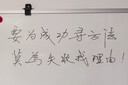 要为成功寻方法
莫为失败找理由！